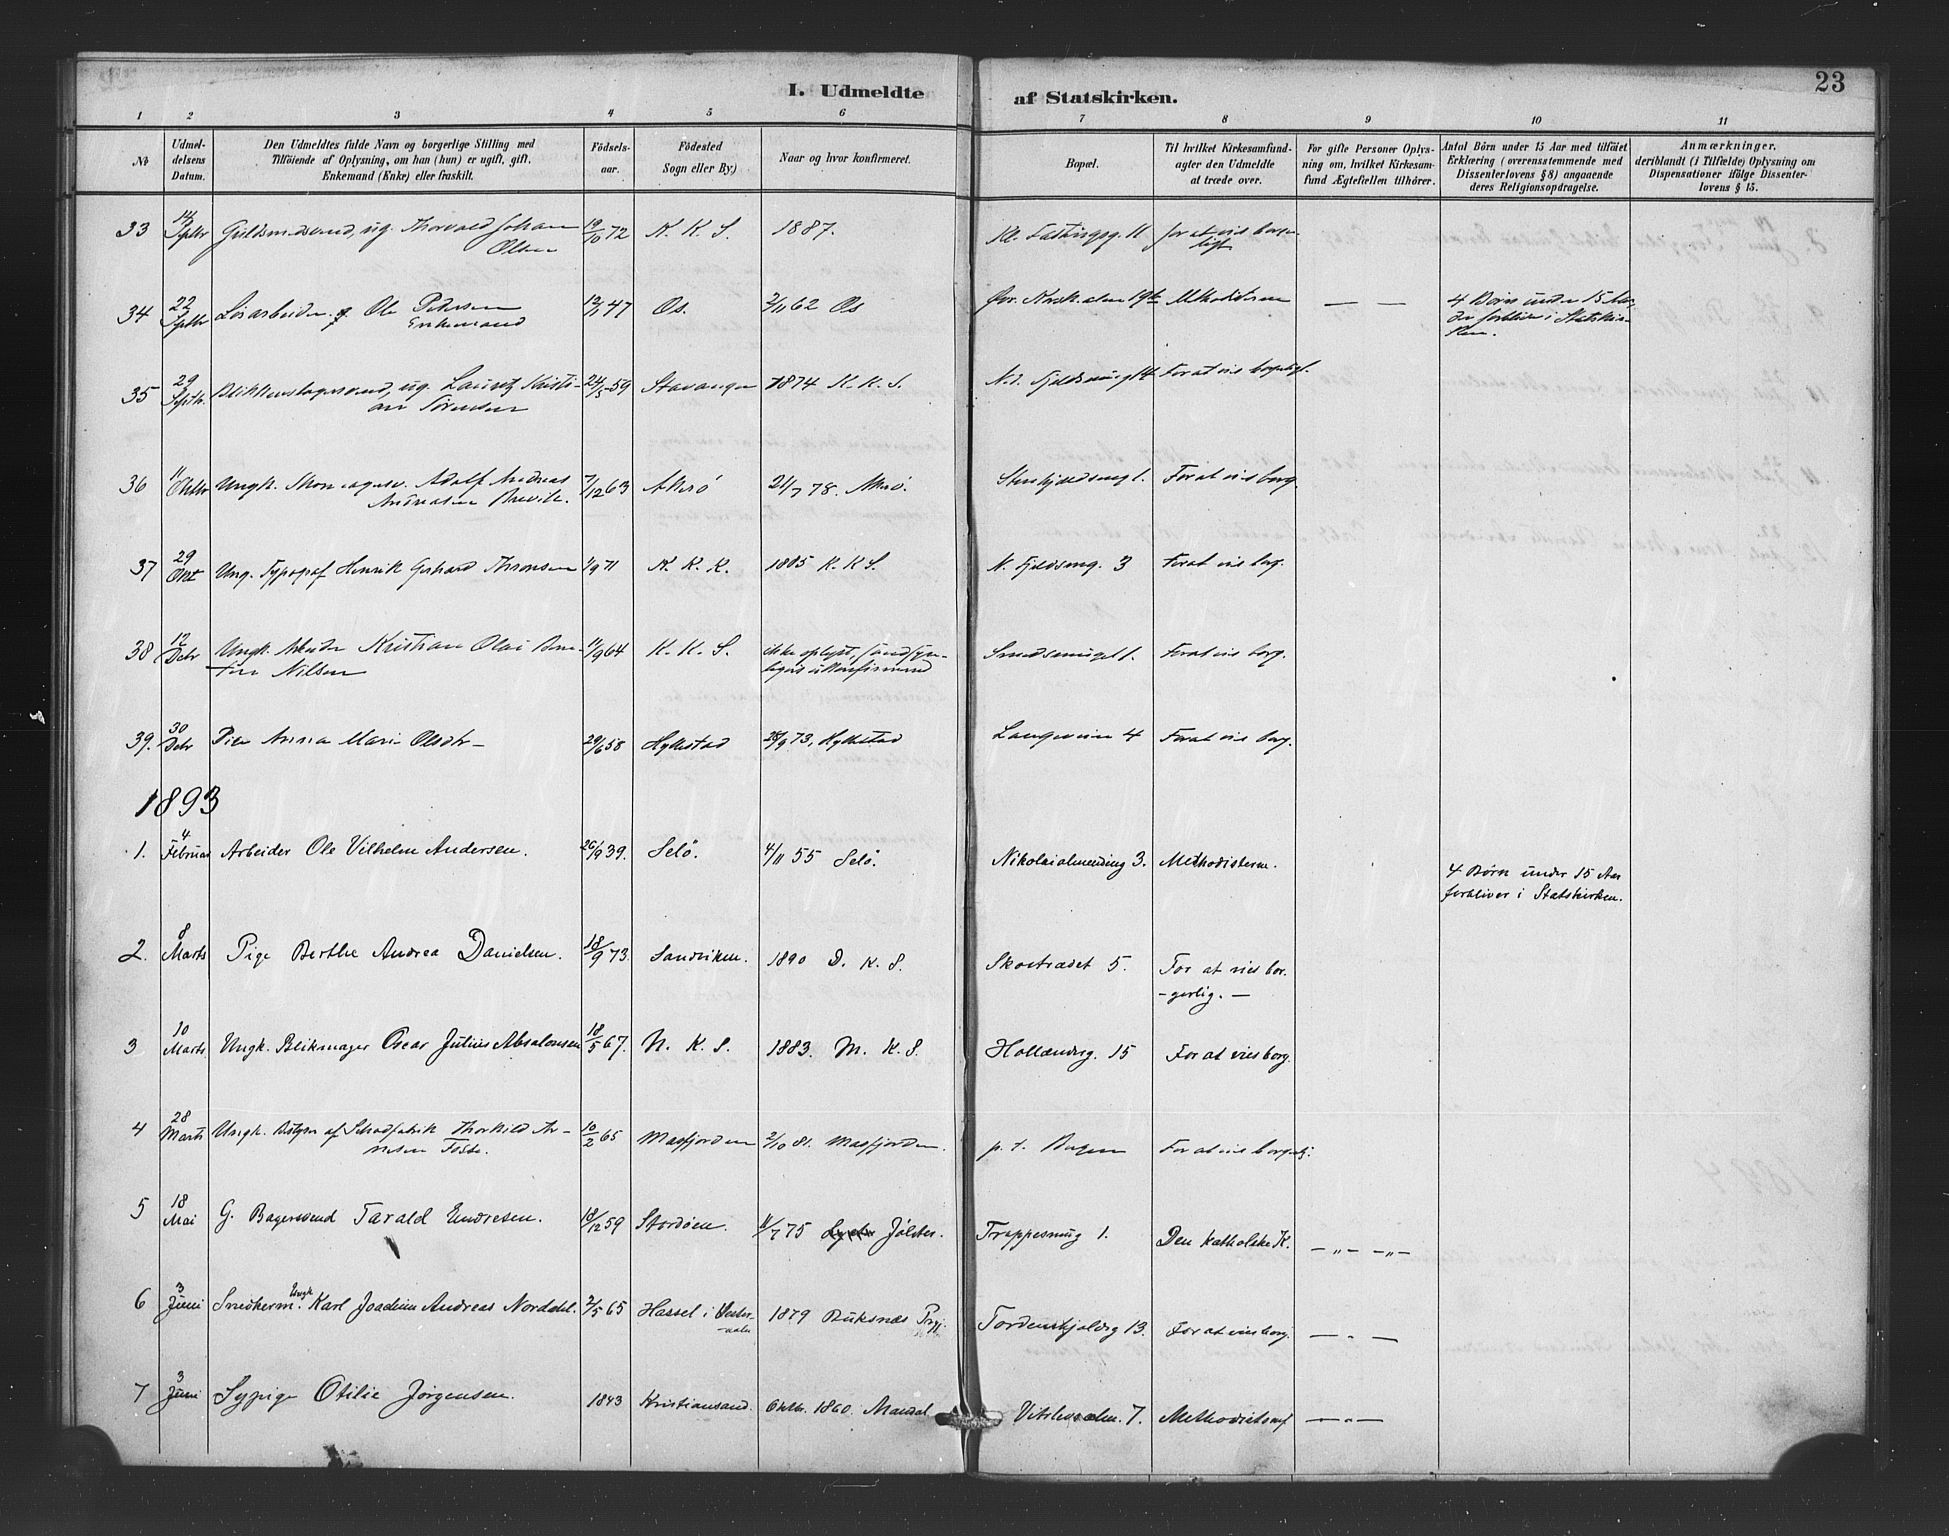 23
I. Udmeldte af Statskirken.
1 2 3 4 5 6 7 8 9 10 11
No
Udmeldelsens Datum.
Den Udmeldtes fulde Navn og borgerlige Stilling med
Tilføiende af Oplysning, om han (hun) er ugift, gift,
Enkemand (Enke) eller fraskilt.
Fødselsaar.
Fødested
Sogn eller By.)
Naar og hvor konfirmeret.
Bopæl.
Til hvilket Kirkesamfund-
agter den Udmeldte
at træde over.
For gifte Personer Oplys-
ning om, hvilket Kirkesam-
fund Ægtefællen tilhører.
Antal Børn under 15 Aar med tilføiet
Erklæring (overensstemmende med
Dissenterlovens § 8) angaaende
deres Religionsopdragelse.
Anmærkninger,
deriblandt (i Tilfælde) Oplysning om
Dispensationer ifølge Dissenter-
lovens § 15.
33 14 Septbr ug. Thorvald Johan Olsen 19/10 72 K. K. S. 1887. for at vies borgerligt
34 22 Septbr Ole Pedersen Enkemand 12/1 47 Os. 2/11 62 Os Methodisterne — — 4 Børn under 15 Aar, der forbliver i Statskirken.
35 29 Septbr. ug. Lauritz Kristian Sørensen 24/5 59 Stavanger 1874 K. K. S. For at vies borgerligt.
36 11 Oktbr Ungk. Adolf Andreas Andreasen 7/12 63 Akerø 21/7 78. Akerø. For at vies borg.
37 29 Okt Ung. Typograf Henrik Gerhard 1/9 71 K. K. K. 1885 K. K. S. N. Fjeldsmug. 3 For at vies borg.
38 12 Debr Ungk. Arbeider Kristian Olai Nilsen 11/9 64 K. K. S. ikke oplyst, For at vies borg.
39. 30 Debr Pige Anna Marie Olsdtr — 29/6 58 Hyllestad 28/9 73, Hyllestad Langeveien 4 For at vies borg.
1893
1. 4 Februar Arbeider Ole Vilhelm Andersen. 26/9 39. Selø. 4/11 55 Selø. Nikolaialmending 3. Methodisterne. 4 Børn under 15 Aar forbliver i Statskirken.
2. 8 Marts Pige Berthe Andrea Danielsen. 18/9 73. Sandviken. 1890 D. K. S. Skostrædet 5. For at vies bor-
-gerlig. —
3 10 Marts Ungk. Blikmager Oscar Julius Absalonsen 18/5 67. N. K. S. 1883. M. K. S. Hollænderg. 15 For at vies borg.
4 28 Marts Ungk. Bestyrer af Thorkild Arnesen 10/2 65 Masfjorden 2/10 81. Masfjorden. p. t. Bergen For at vies borgerlig.
5 18 Mai G. Bagersvend Tarald Endresen. 18/12 59 Stordøen. 11/7 75 Jølster. Trappesmug 1. Den katholske K. — „ — — „ —
6 3 Juni Snedkerm. Ungk Karl Joachim Andreas Norddal. 2/5 65 Hassel i Vester-
aalen 1879 Buksnæs Prgj. Tordenskjoldsg 13. For at vies borg. — „ —
7 3 Juni Sypige Otilie Jørgensen. 1843 Kristiansand. Oktbr. 1860. Mandal 7. Methodistsamf — „ —